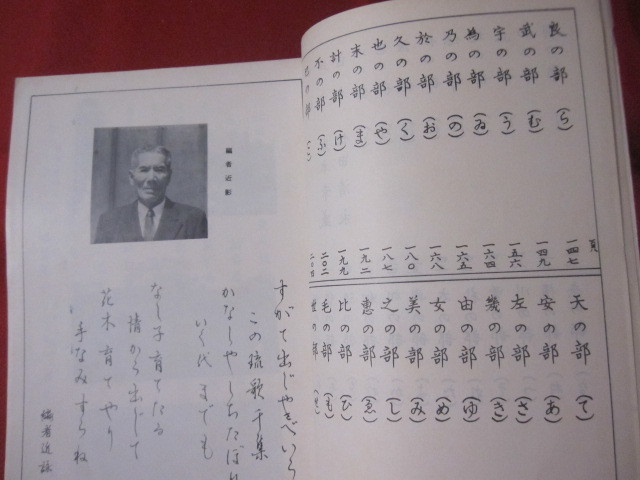 良の部 (ら) 一四七
武の部 (む) 一四九
宇の部 (う) 一五六
為の部 (ゐ) 一六四
乃の部 (の) 一六五
於の部 (お) 一六八
久の部 (く) 一八〇
也の部 (や) 一八七
末の部 (ま) 一九二
計の部 (け) 一九九
不の部 (ふ) 二〇二
の部
頁
天の部 (て)
安の部 (あ)
左の部 (さ)
幾の部 (き)
由の部 (ゆ)
女の部 (め)
美の部 (み)
之の部 (し)
恵の部 (ゑ)
比の部 (ひ)
毛の部 (も)
世の部
編者近影
すがて出じやさべいら
この琉歌千集
かなしやしちたぼり
いく代までも
なし子育てたる
情から出じて
花木育てやり
手なみすらね
編者近詠